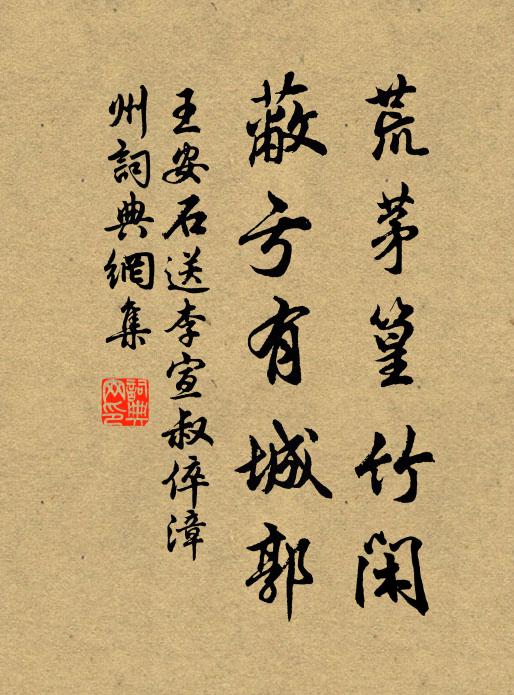 荒茅篁竹闲
蔽亏有城郭
王安石送李宣叔倅漳
州詞典網集
詞典網印